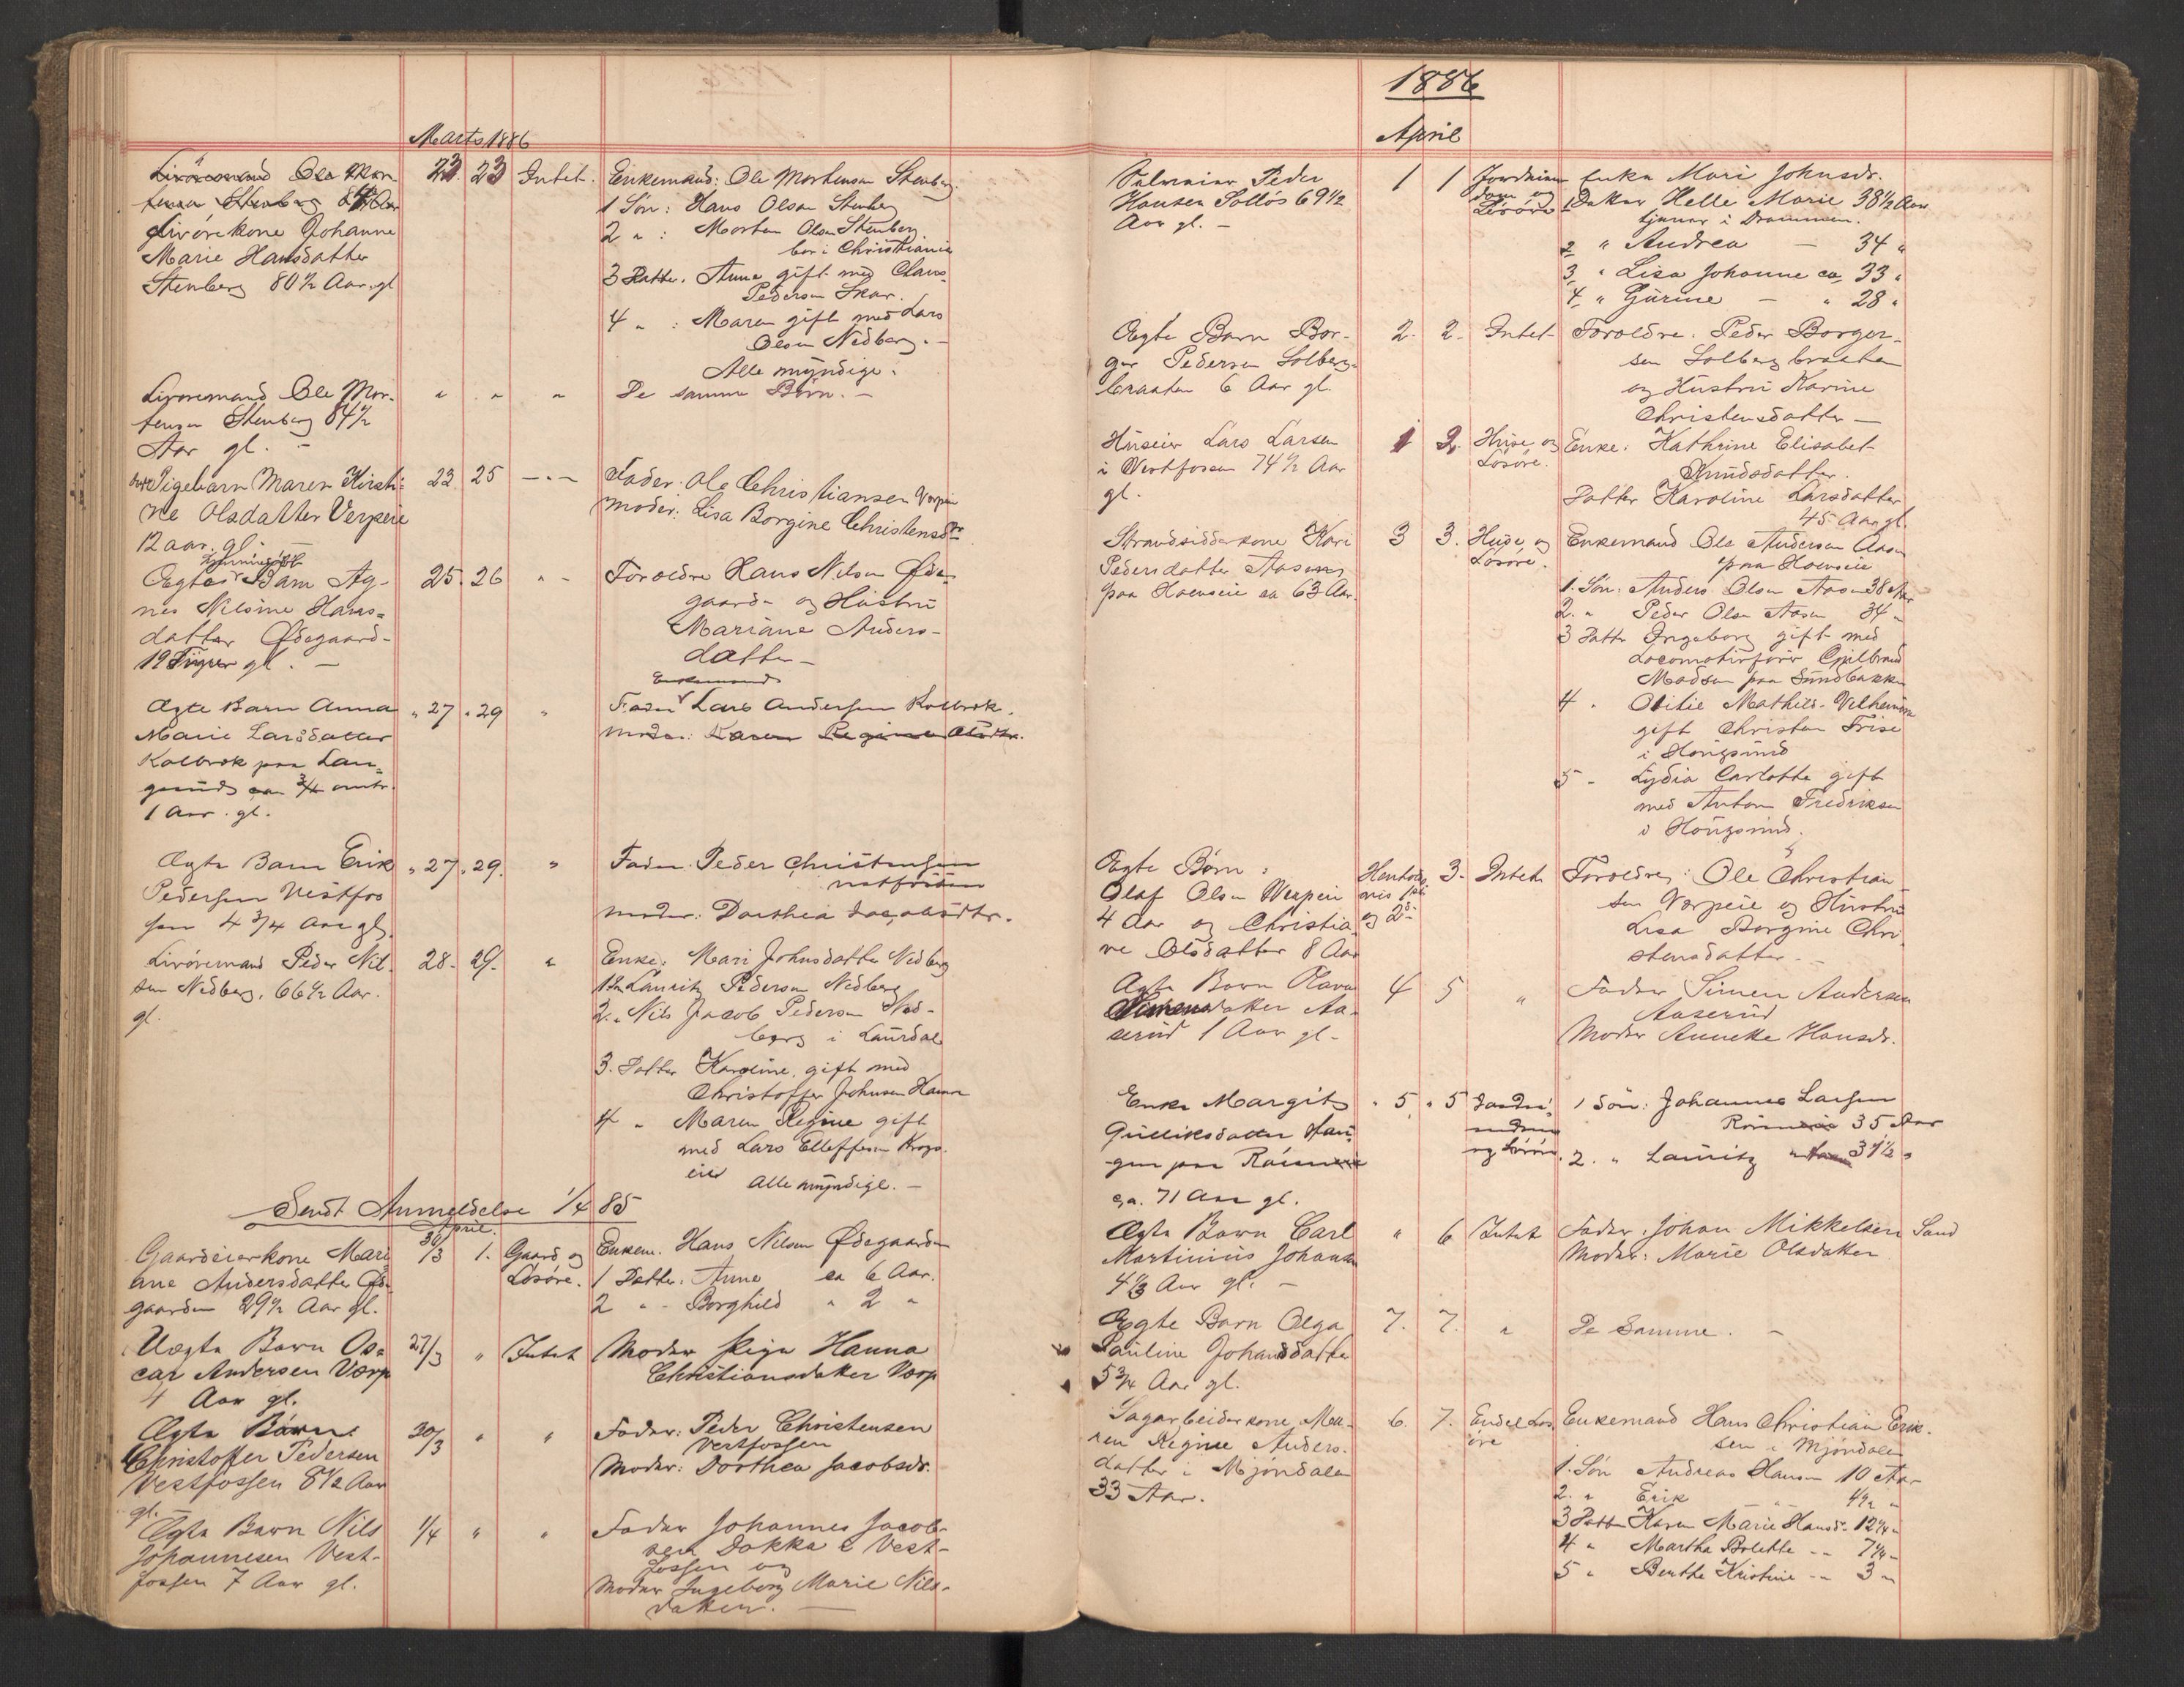 Marts 1886
Livöremand Ole Mor
tensen Stenberg 84 Aar
Livörekone Johanne
Marie Hansdatter
Stenberg 80½ Aar gl
23. 23 Intet.
Enkemand: Ole Mortensen Stenberg.
1 Sön: Hans Olsen Stenberg
2 " : Morten Olsen Stenberg.
bor i Christiania
3 Datter. Anna gift med Claus
Pedersen Skar.
4 " : Maren gift med Lars
Olsen Nedberg. -
Alle myndige.
Livöremand Ole Mor-
tensen Stenberg 84½
Aar gl. -
" " "
De samme Börn. -
Pigebarn Maren Kirsti-
ne Olsdatter Verpeie
12 aar. gl.
23 25 - " -
Fader: Ole Christiansen Verpeie
moder: Lisa Borgine Christensdtr
Ægte Barn Ag-
nes Nilsine Hans-
datter Ødegaard-
19 Timer gl. -
25. 26 " -
Foroldre Hans Nilsen Øde-
gaard- og Hustru
Mariane Anders-
datter -
Ægte Barn Anna
Marie Larsdatter
Kolbrek paa Lan-
gerud ca ¾ omtr.
1 Aar. gl.
" 27 " 29 "
Enkemand
Fader Lars Andersen Kolbrek.
moder: Karen Regine Olsdtr.
Ægte Barn Erik
Pedersen Vestfos
sen 4¾ Aar gl.
" 27. 29. "
Fader. Peder Christensen
vestfossen
moder: Dorthea Jacobsdtr.
Livöremand Peder Nil-
sen Nedberg. 66½ Aar.
gl.
28. 29. "
Enke: Mari Johnsdatter Nedberg
1 Sön Lauritz Pedersen Nedberg
2. " Nils Jacob Pedersen Ned-
berg i Laurdal
3. Datter Karoline. gift med
Christoffer Johnsen Hamre
4 " Maren Regine gift
med Lars Elleffsen Krogs
eie
Alle myndige. -
Sendt Anmeldelse 1/4 85
April.
Gaardeierkone Mari
ane Andersdatter Øde
gaarden 29½ Aar gl.
30/3 1. Gaard og
Lösöre.
Enkem. Hans Nilsen Ødegaarden
1 Datter: Anne ca 6 Aar.
2 " - Borghild " 2 "
Uægte Barn Os-
car Andersen Vœrp
4 Aar gl.
27/3 " Intet
Moder Pige Hanna
Christiansdatter Vœrp
Ægte Barn
Christoffer Pedersen
Vestfossen 8½ Aar
gl.
30/3 " "
Fader: Peder Christensen
Vestfossen
Moder: Dorthea Jacobsdr.
Ægte Barn Nils
Johannesen Vest-
fossen 7 Aar gl.
1/4 " "
Fader Johannes Jacob-
sen Dokka i Vest-
fossen og
Moder Ingeborg Marie Nils-
datter. -
1886
April
Peder
Hansen Solløs 69½
Aar gl. -
1 1 Jordeien
dom og
Lösöre
Enke Mari Johnsdr.
1 Datter Helle Marie 38½ Aar
tjener i Drammen.
2 " Andrea - 34 "
3, " Lisa Johanne ca 33 "
4, " Gurine - " 28 "
Ægte Barn Bor-
ger Pedersen Solberg-
braaten 6 Aar gl.
2. 2. Intet
Foroldre. Peder Borger-
sen Solberg braaten
og Hustru Karine
Christensdatter -
Huseier Lars Larsen
i Vestfossen 74½ Aar
gl.
1 2. Huse og
Lösöre.
Enke: Kathrine Elisabet
Knudsdatter.
Datter Karoline Larsdatter
45 Aar gl.
Strandsidderkone Kari
Pedersdatter Aasen
paa Hoenseie ca 63 Aar.
3 3. Huse og
Lösöre.
Enkemand Ole Andersen Aasen
paa Hoenseie
1. Sön. Anders Olsen Aasen 38 Aar
2. " Peder Olsen Aasen 34 "
3 Datter Ingeborg gift med
Locomotivförer Gulbrand
Madsen paa Sundbakken
4 " Otilie Mathild. Velhemine
gift Christen Frise
i Hougsund
5 - Lydia Carlotte gift
med Anton Fredriksen
i Hougsund.
Ægte Börn:
Olaf Olsen Verpeie
4 Aar og Christia-
ne Olsdatter 8 Aar
Henholds
vis 1ste
og 2d
3. Intet
Foroldre: Ole Christian
sen Verpeie og Hustru
Lisa Borgine Chri
stensdatter. -
Ægte Barn Olava
Simensdatter Aa-
serud 1 Aar gl.
4 5 "
Fader Simen Andersen
Aaserud
Moder Anneke Hansdr.
Enke Margit
Gulliksdatter Hau-
gen paa
ca. 71 Aar gl.
" 5. " 5 Jordei-
endom
og Lösöre.
1 Sön: Johannes Larsen
35 Aar
2. " Lauritz 31½ "
Ægte Barn Carl
Martinius Johansen
4⅓ Aar gl. -
" 6 Intet
Fader: Johan Mikkelsen Sand
Moder: Marie Olsdatter
Ægte Barn Olga
Pauline Johansdatter
5¾ Aar gl.
7. 7. "
De Samme. -
Sagarbeiderkone Ma-
ren Regine Anders-
datter i Mjöndalen
33 Aar.
6. 7. Endel Lös
öre
Enkemand Hans Christian Erik-
sen i Mjöndalen
1. Sön Andreas Hansen 10 Aar
2. " Erik " 4½ "
3 Datter Karen Marie Hansd. 12¼ "
4 " Martha Bolette - " 7¼ "
5 " Berthe Kristine - " 3 "